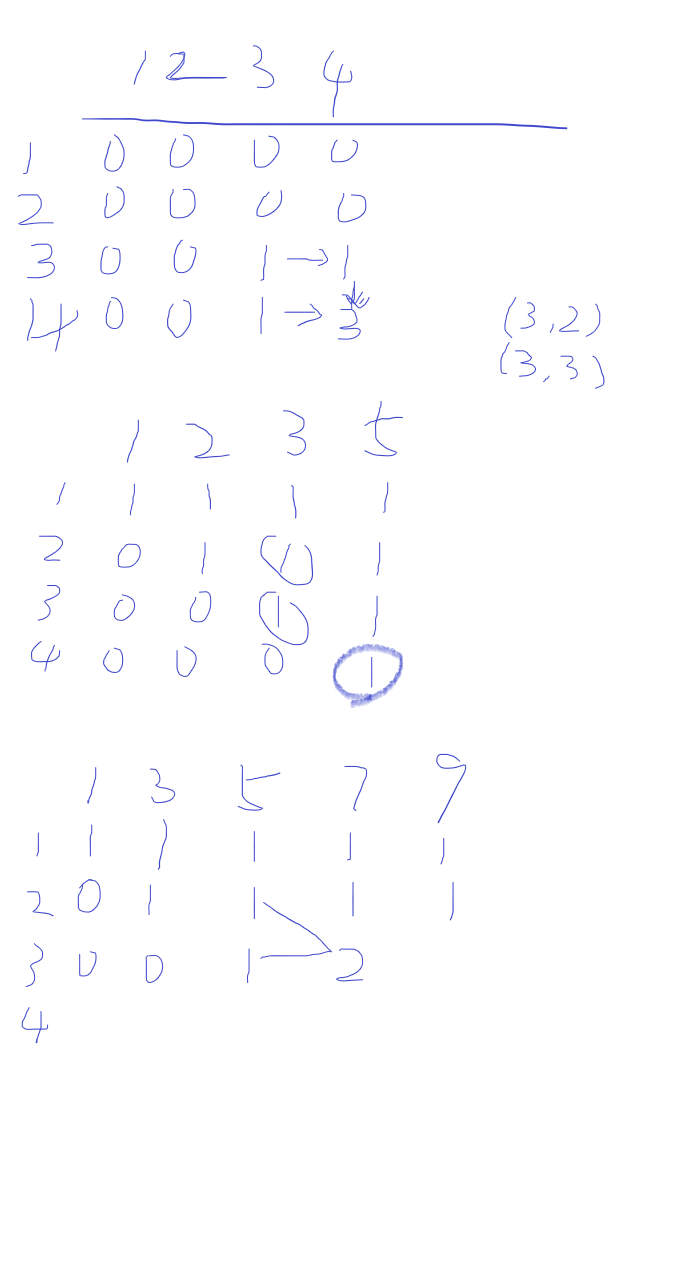 1 2 3 4
1 0 0 0 0
2 0 0 0 0
3 0 0 1 → 1
4 0 0 1 → 3
(3,2)
(3,3)
1 2 3 5
1 1 1 1 1
2 0 1 1 1
3 0 0 1 1
4 0 0 0 1
1 3 5 7 9
1 1 1 1 1 1
2 0 1 1 1 1
3 0 0 1 2
4